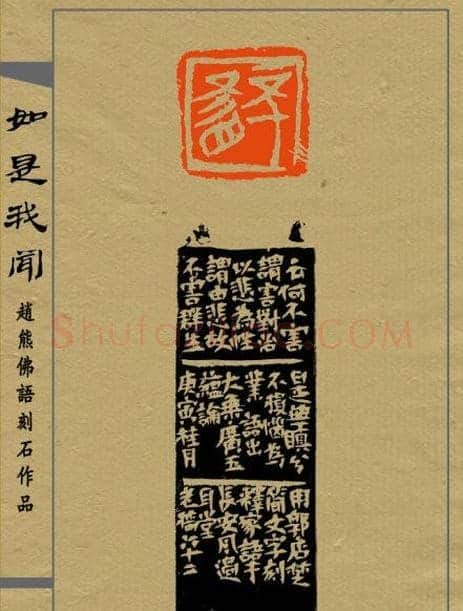 如是我聞
趙熊佛語刻石作品
云何不害
謂害對治
以悲為性
謂由悲故
不害群生
是無瞋分
不損惱為
業語出
大乘廣五
蘊論
庚寅桂月
用郭店楚
簡文字刻
釋家語于
長安風過
耳堂